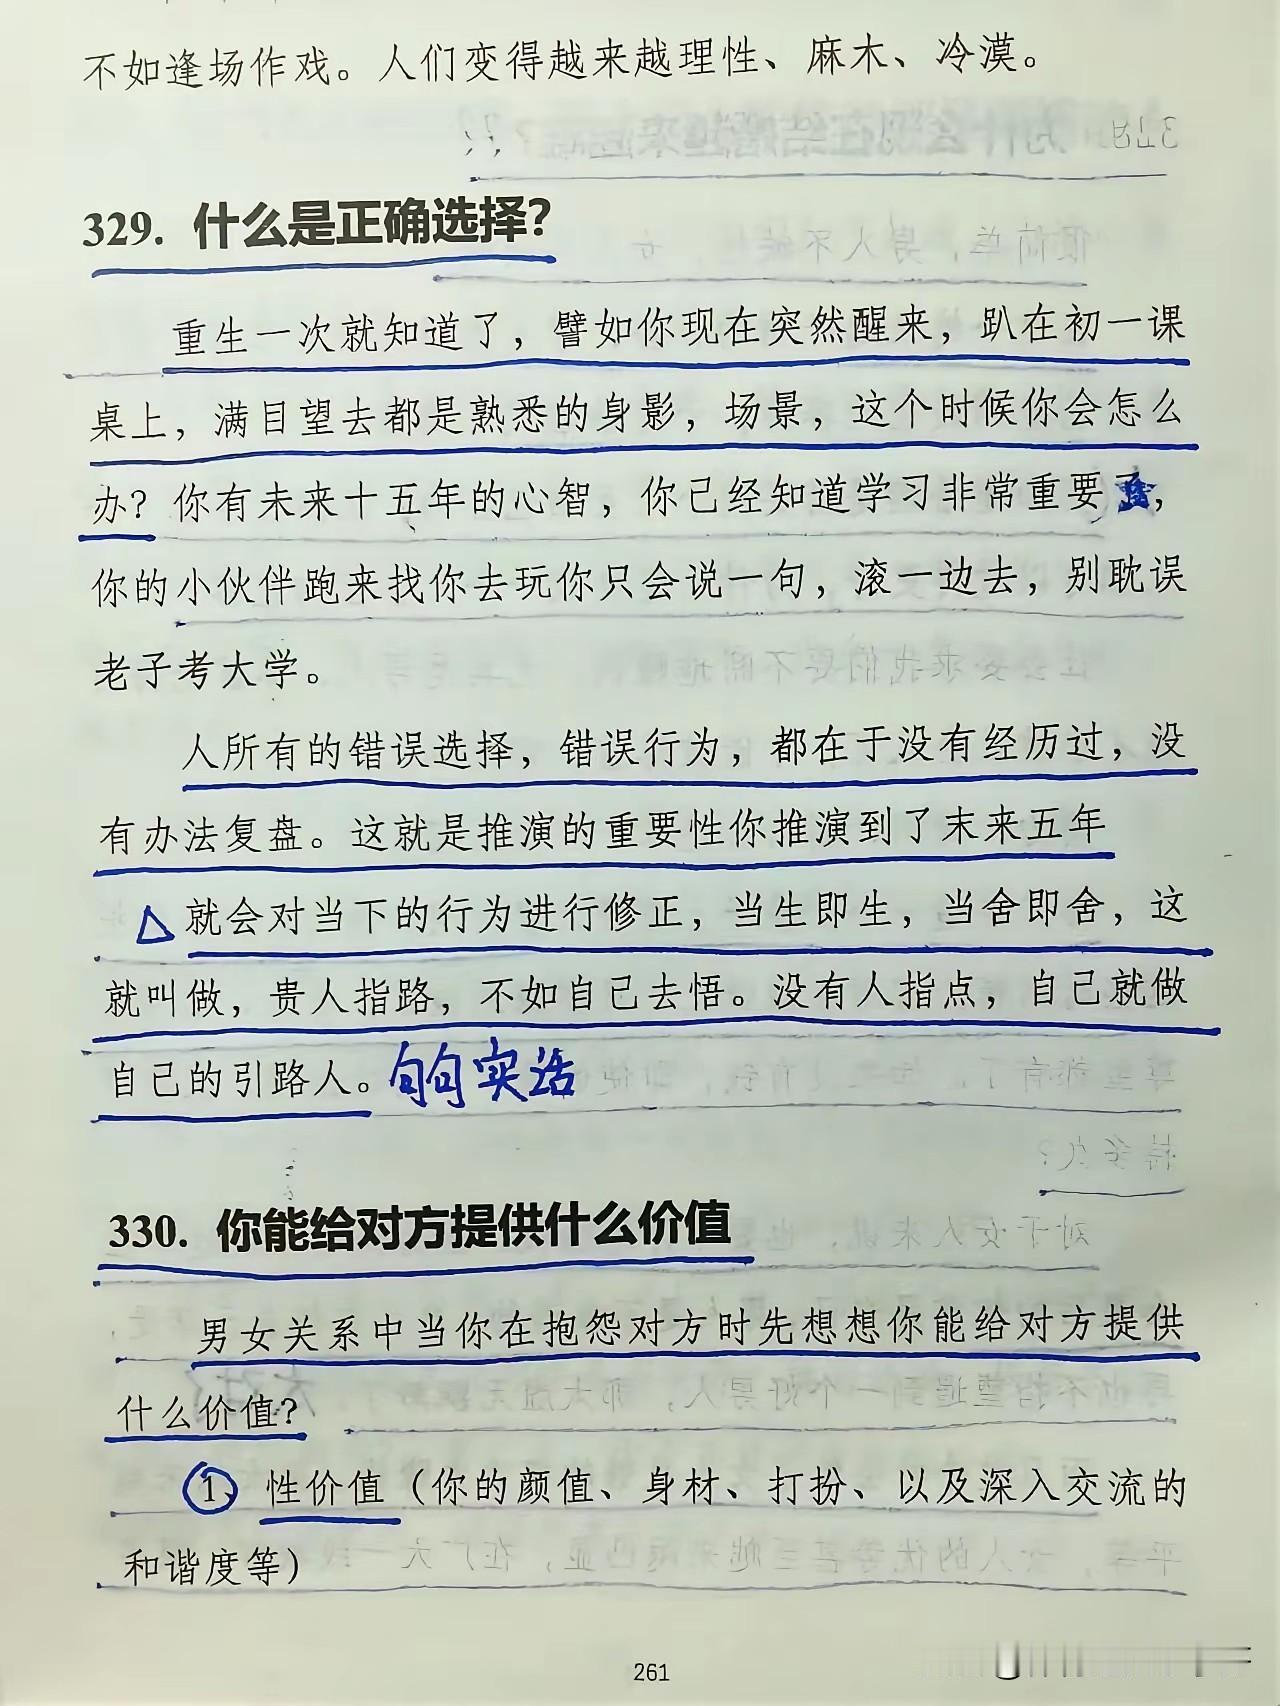 不如逢场作戏。人们变得越来越理性、麻木、冷漠。
329. 什么是正确选择?
重生一次就知道了，譬如你现在突然醒来，趴在初一课
桌上，满目望去都是熟悉的身影，场景，这个时候你会怎么
办?你有未来十五年的心智，你己经知道学习非常重要，
你的小伙伴跑来找你去玩你只会说一句，滚一边去，别耽误
老子考大学。
人所有的错误选择，错误行为，都在于没有经历过，没
有办法复盘。这就是推演的重要性你推演到了末来五年
△就会对当下的行为进行修正，当生即生，当舍即舍，这
就叫做，贵人指路，不如自己去悟。没有人指点，自己就做
自己的引路人。句句实话
330. 你能给对方提供什么价值
男女关系中当你在抱怨对方时先想想你能给对方提供
什么价值?
1、性价值（你的颜值、身材、打扮、以及深入交流的
和谐度等）
261